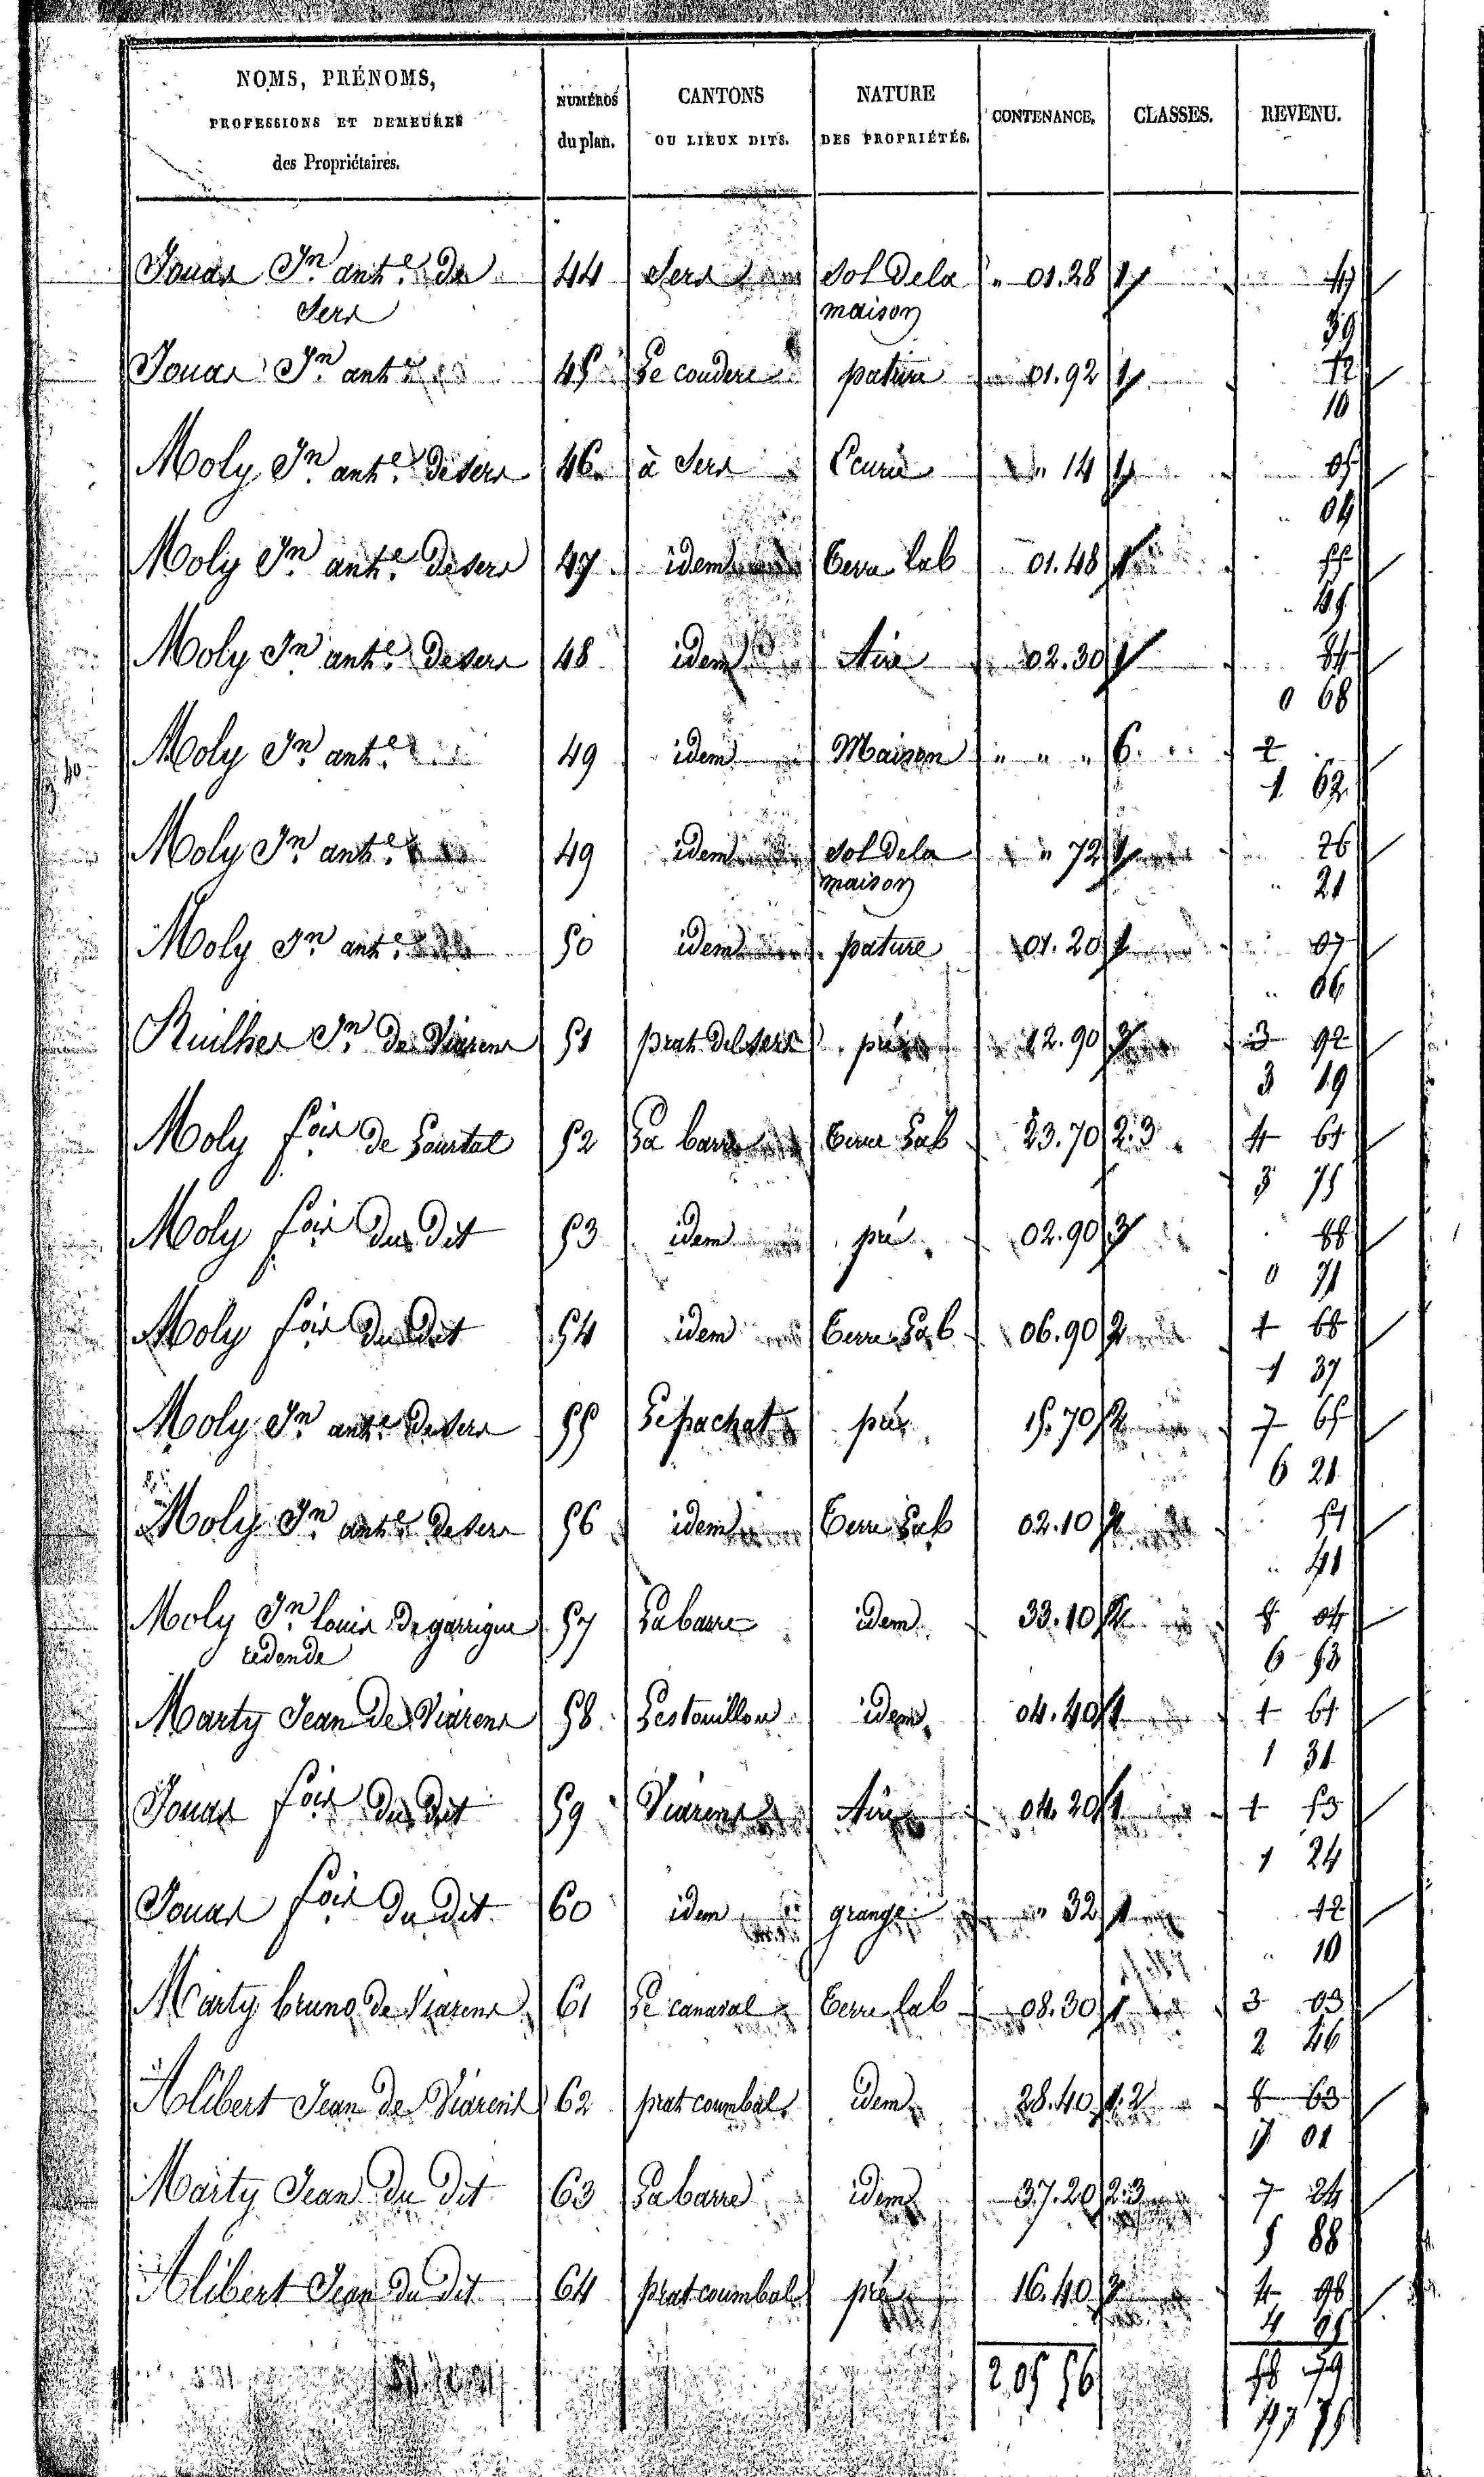 NOMS, PRÉNOMS, PROFESSIONS ET DEMEURES des Propriétaires. NUMÉROS du plan. CANTONS OU LIEUX DITS. NATURE DES PROPRIÉTÉS. CONTENANCE. CLASSES. REVENU.
Jouas Jn ante de 44 Sers sol de la " 01.28 1 47
Sers maison 39
Jouas Jn ante 45 Le couderc pature 01.92 1 12
10
Moly Jn ante de sers 46 à Sers Ecurie " 14 1 05
" 04
Moly Jn ante de sers 47 idem terre lab 01.48 1 55
" 45
Moly Jn ante de sers 48 idem Aire 02.30 1 84
0 68
Moly Jn ante 49 idem Maison " " " 6 2
1 62
Moly Jn ante 49 idem sol de la " 72 1 26
maison " 21
Moly Jn ante 50 idem pature 01.20 1 07
" 06
Ruilhes Jn de Viarens 51 prat del sers pré 12.90 3 3 92
3 19
Moly fois de 52 La barre terre Lab 23.70 2.3 4 61
3 75
Moly fois du dit 53 idem pré 02.90 3 88
0 71
Moly fois du dit 54 idem terre Lab 06.90 2 1 68
1 37
Moly Jn ante de sers 55 Le pachat pré 15.70 2 7 65
6 21
Moly Jn ante de sers 56 idem terre Lab 02.10 2 51
" 41
Moly Jn louis de garrigue 57 La barre idem 33.10 2 8 04
redonde 6 53
Marty Jean de Viarens 58 Lestouillou idem 04.40 1 1 61
1 31
Jouas fois du dit 59 Viarens Aire 04.20 1 1 53
1 24
Jouas fois du dit 60 idem grange " 32 1 12
" 10
Marty bruno de Viarens 61 Le canaval terre lab 08.30 1 3 03
2 46
Alibert Jean de Viarens 62 prat coumbal idem 28.40 1.2 8 63
7 01
Marty Jean du dit 63 La barre idem 37.20 2.3 7 24
5 88
Alibert Jean du dit 64 prat coumbal pré 16.40 3 4 98
4 05
2 05 56 58 79
47 75